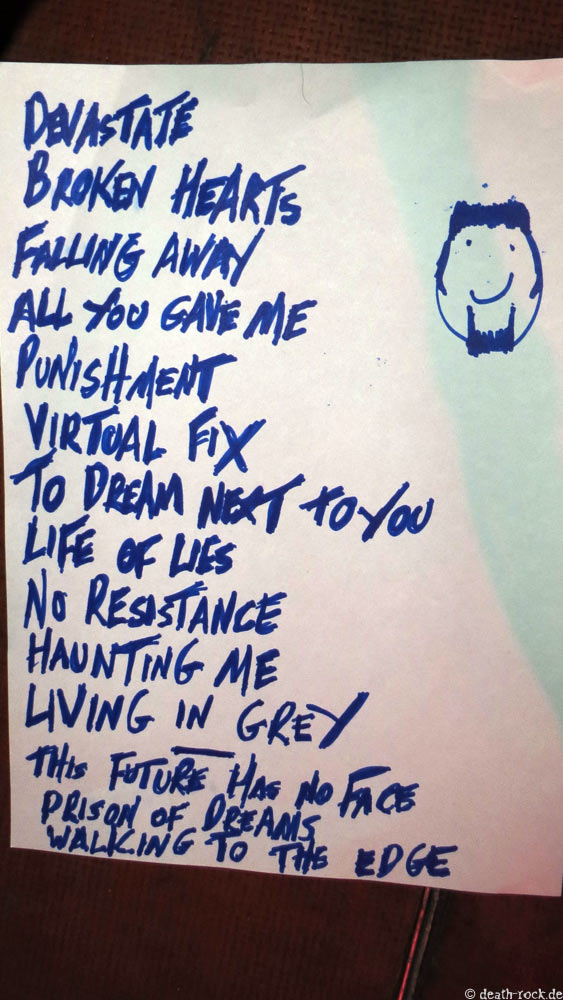 DEVASTATE
BROKEN HEARTS
FALLING AWAY
ALL YOU GAVE ME
PUNISHMENT
VIRTUAL FIX
TO DREAM NEXT TO YOU
LIFE OF LIES
NO RESISTANCE
HAUNTING ME
LIVING IN GREY
THIS FUTURE HAS NO FACE
PRISON OF DREAMS
WALKING TO THE EDGE
© death-rock.de